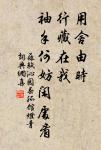 用舍由時
行藏在我
袖手何妨閑處看
蘇軾沁園春孤館燈青
詞典網集